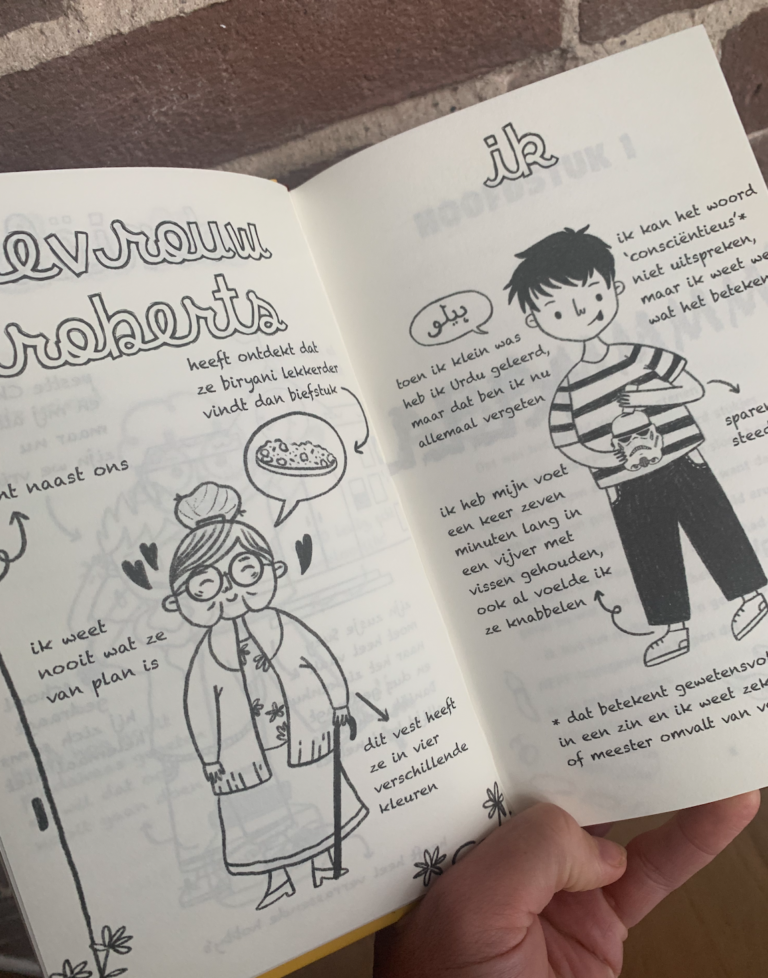 roberts
heeft ontdekt dat
ze biryani lekkerder
vindt dan biefstuk
naast ons
ik weet
nooit wat ze
van plan is
dit vest heeft
ze in vier
verschillende
kleuren
ik
ik kan het woord
'consciëntieus'*
niet uitspreken,
maar ik weet
wat het
toen ik klein was
heb ik Urdu geleerd,
maar dat ben ik nu
allemaal vergeten
ik heb mijn voet
een keer zeven
minuten lang in
een vijver met
vissen gehouden,
ook al voelde ik
ze knabbelen
* dat betekent
in een zin en ik weet
of meester omvalt van
HOOFDSTUK 1